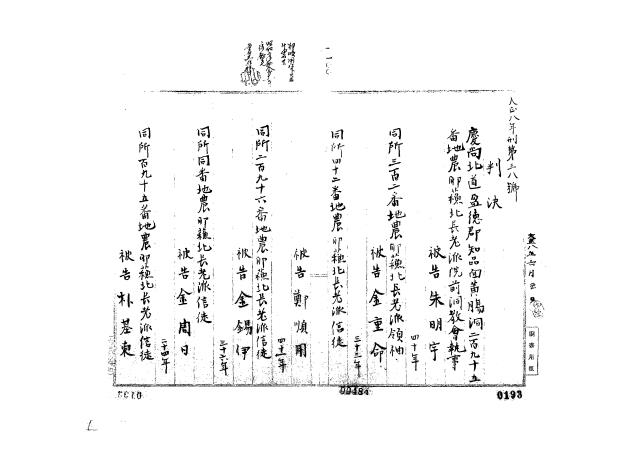 大正八年刑第三八號
判決
慶尚北道盈德郡知品面黃膓洞二百九十五
番地農耶蘓北長老派院前洞敎會執事
被告 朱明宇
四十年
同所三百二番地農耶蘓北長老派領袖
被告 金重命
三十三年
同所四十二番地農耶蘓北長老派信徒
被告 鄭順用
四十二年
同所二百九十六番地農耶蘓北長老派信徒
被告 金錫伊
三十六年
同所同番地農耶蘓北長老派信徒
被告 金周日
二十四年
同所百九十五番地農耶蘓北長老派信徒
被告 朴基東
00484
0193